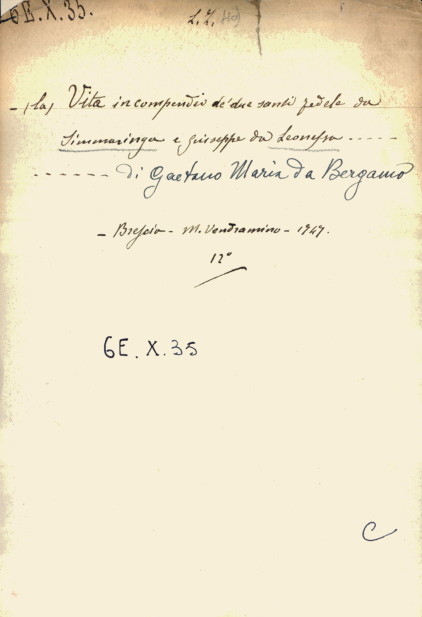 6E.X.35.
L.Z.
- (la) Vita in compendio de' due santi fedele da
Simmaringa e Giuseppe da Leonessa ....
------ di Gaetano Maria da Bergamo
- Brescia - M. Vendramino - 1747.
12°
6E.X.35
C